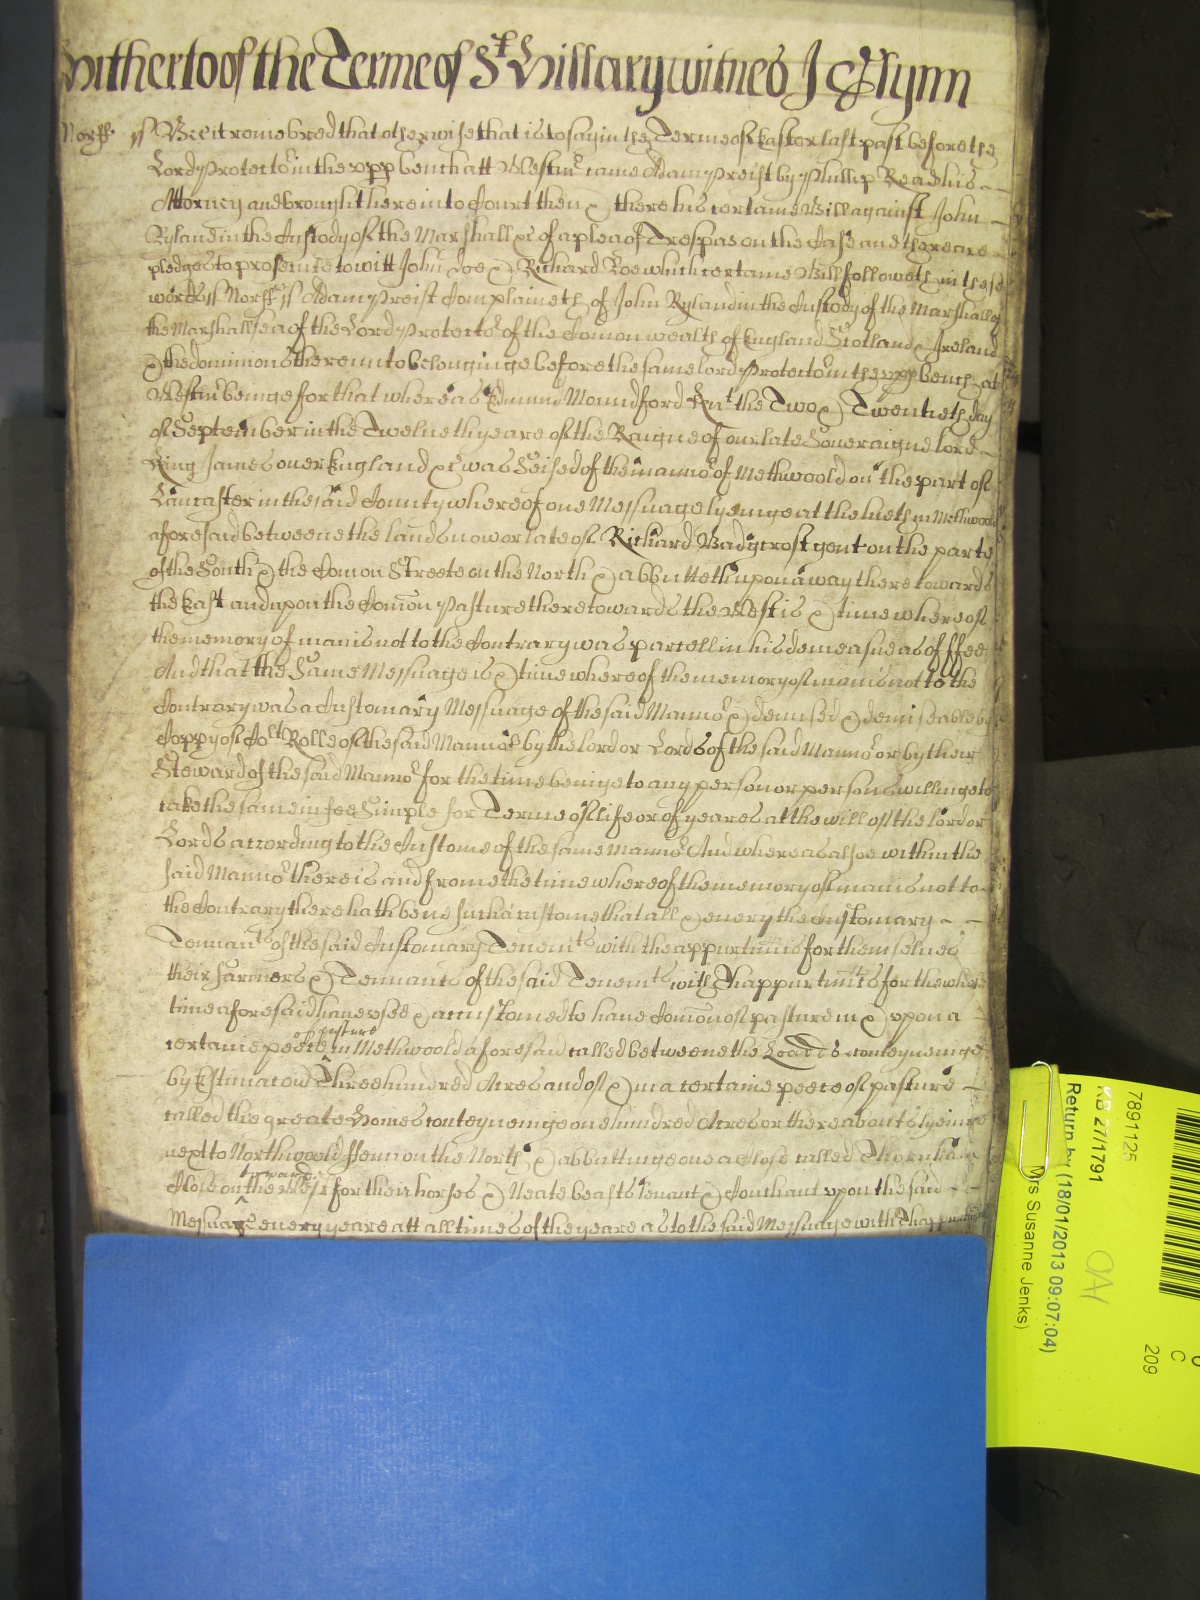 Hitherto of the Terme of St Hillary witnes J Glynn
Norff ss Bee it remembred that otherwise that is to say in the Terme of Easter last past before the
Lord Protector in the upp bench att Westmr came Adam Preist by Phillip Read his
Attorney and brought here into Court then & there his certaine Bill against John
Ryland in the Custody of the Marshall &c of a plea of Trespas on the Case and there are
pledges to prosecute to witt John Doe & Richard Roe which certaine Bill followeth in these
words ss Norff ss Adam Preist Complaineth of John Ryland in the Custody of the Marshall of
the Marshallsea of the Lord Protector of the Comonwealth of England Scotland & Ireland
& the dominions thereunto belonginge before the same lord Protector in the upp bench at
Westmr beinge for that whereas Edmund Moundford Knt the Two & Twentieth day
of September in the Twelueth yeare of the Raigne of our late Soueraigne lord
King James ouer England &c was Seised of the mannor of Methwoold on the part of
Lancaster in the said County whereof one Messuage lyeinge at the in Methwoold
aforesaid betweene the lands now or late of Richard gent on the parte
of the South & the Comon Streete on the North & abbutteth upon a way there towards
the East and upon the Comon Pasture there towards the West is & time whereof
the memory of man is not to the Contrary was parcell in his demeasne as of ffee
And that the Same Messuage is & time whereof the memory of man is not to the
Contrary was a Customary Messuage of the said Mannor & demised & demiseable by
Coppy of Cort Rolle of the said Mannor by the lord or Lords of the said Mannor or by their
Steward of the said Mannor for the time beinge to any person or persons willinge to
take the same in fee Simple for Terme of life or of yeares at the will of the lord or
Lords accordinge to the Custome of the same mannor And whereas alsoe within the
said Mannor there is and from the time whereof the memory of man is not to
the Contrary there hath bene such a custome that all & euery the Customary
Tennants of the said Customary Tenemts with the appurtnns for themselues
their farmers & Tennants of the said Tenemts with Thappurtnnts for the whole
time aforesaid haue used & accustomed to haue Comon of pasture in & upon a
of pasture
certaine peece in Methwoold aforesaid called betweene the conteyneinge
by Estimacon Three hundred Acres and of & in a certaine peece of pasture
called the greate conteyneinge one hundred Acres or thereabouts lyeinge
next to Northwoold ffenn on the North & abbuttinge one a Close called
towards
Close on the West for their horses & Neate beasts leuant & Couchant upon the said
Messuage euery yeare att all times of the yeare as to the said Messuage with
7891125
KB 27/1791
Return by (18/01/2013 09:07:04)
Ms Susanne Jenks)
C
209